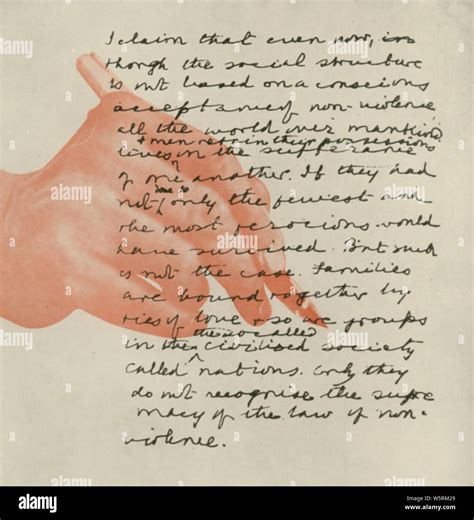 I claim that even now,
though the social structure
is not based on a conscious
acceptance of non-violence
all the world over mankind
& men retain their possessions
lives on the sufferance
of one another. If they had
done so
not, only the fewest and
the most ferocious would
have survived. But such
is not the case. Families
are bound together by
ties of love & so are groups
the so called
in the civilised society
called nations. Only they
do not recognise the supre
macy of the law of non-
violence.
alamy
Image ID: W5RM29
www.alamy.com